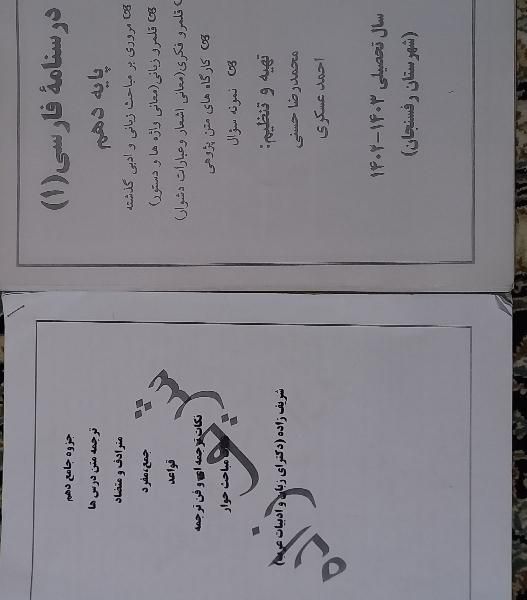 درسنامهٔ فارسی(۱)
پایه دهم
مروری بر مباحث زبانی و ادبی گذشته
قلمرو زبانی(معانی واژه ها و دستور)
قلمرو فکری(معانی اشعار وعبارات دشوار)
کارگاه های متن پژوهی
نمونه سؤال
تهیه و تنظیم:
محمدرضا حسنی
احمد عسکری
سال تحصیلی ۱۴۰۳-۱۴۰۲
(شهرستان رفسنجان)
جزوه جامع دهم
ترجمه متن درس ها
مترادف و متضاد
جمع،مفرد
قواعد
نکات ترجمه ای و فن ترجمه
مباحث حوار
شریف زاده (دکترای زبان و ادبیات عرب)
شریف زاده